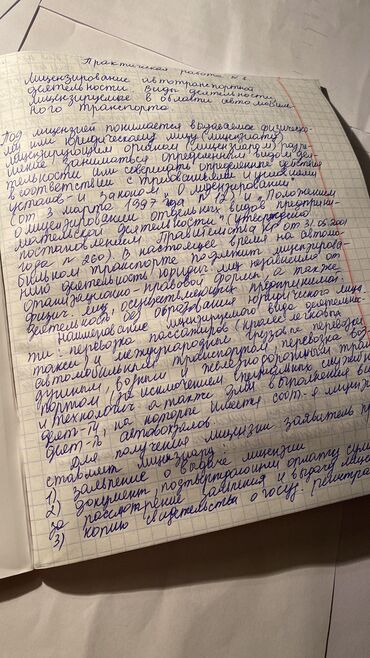 Практическая работа №2.
Лицензирование автотранспортной
деятельности. Виды деятельности
лицензируемое в области автомобиль-
ного транспорта.
Под лицензией понимается выдаваемое физическо-
му или юридическому лицу (лицензиату)
лицензирующим органом (лицензиаром) разре-
шение заниматься определенным видом дея-
тельности или совершать определенные действия
в соответствии с требованиями и условиями
установ-и законом „О лицензировании"
(от 3 марта 1997 года №12) и „Положением
о лицензировании отдельных видов предприни-
мательской деятельности" (утверждено
постановлением Правительства КР от 31.05.2001
года № 260). В настоящее время на автомо-
бильном транспорте подлежит лицензирова-
нию деятельность юридич. лиц независимо от
организационно-правовой формы, а также
физич. лиц, осуществляющих предприниматель.
деятельность без образования юридического лица.
Наименование лицензируемого вида деятельнос-
ти: перевозка пассажиров (кроме легковых
такси) и международные грузовые перевозки
автомобильным транспортом, перевозка воз-
душным, водным и железнодорожным транс-
портом (за исключением специальных
и технологич. а также для выполнения
деят-ти, на которые имеется соот-я лицензия
деят-ть автовокзалов
Для получения лицензии заявитель пред-
ставляет лицензиару:
1) заявление о выдаче лицензии
2) документ, подтверждающий оплату суммы
за рассмотрение заявления и выдачу лицен
3) копию свидетельства о госуд. регистра